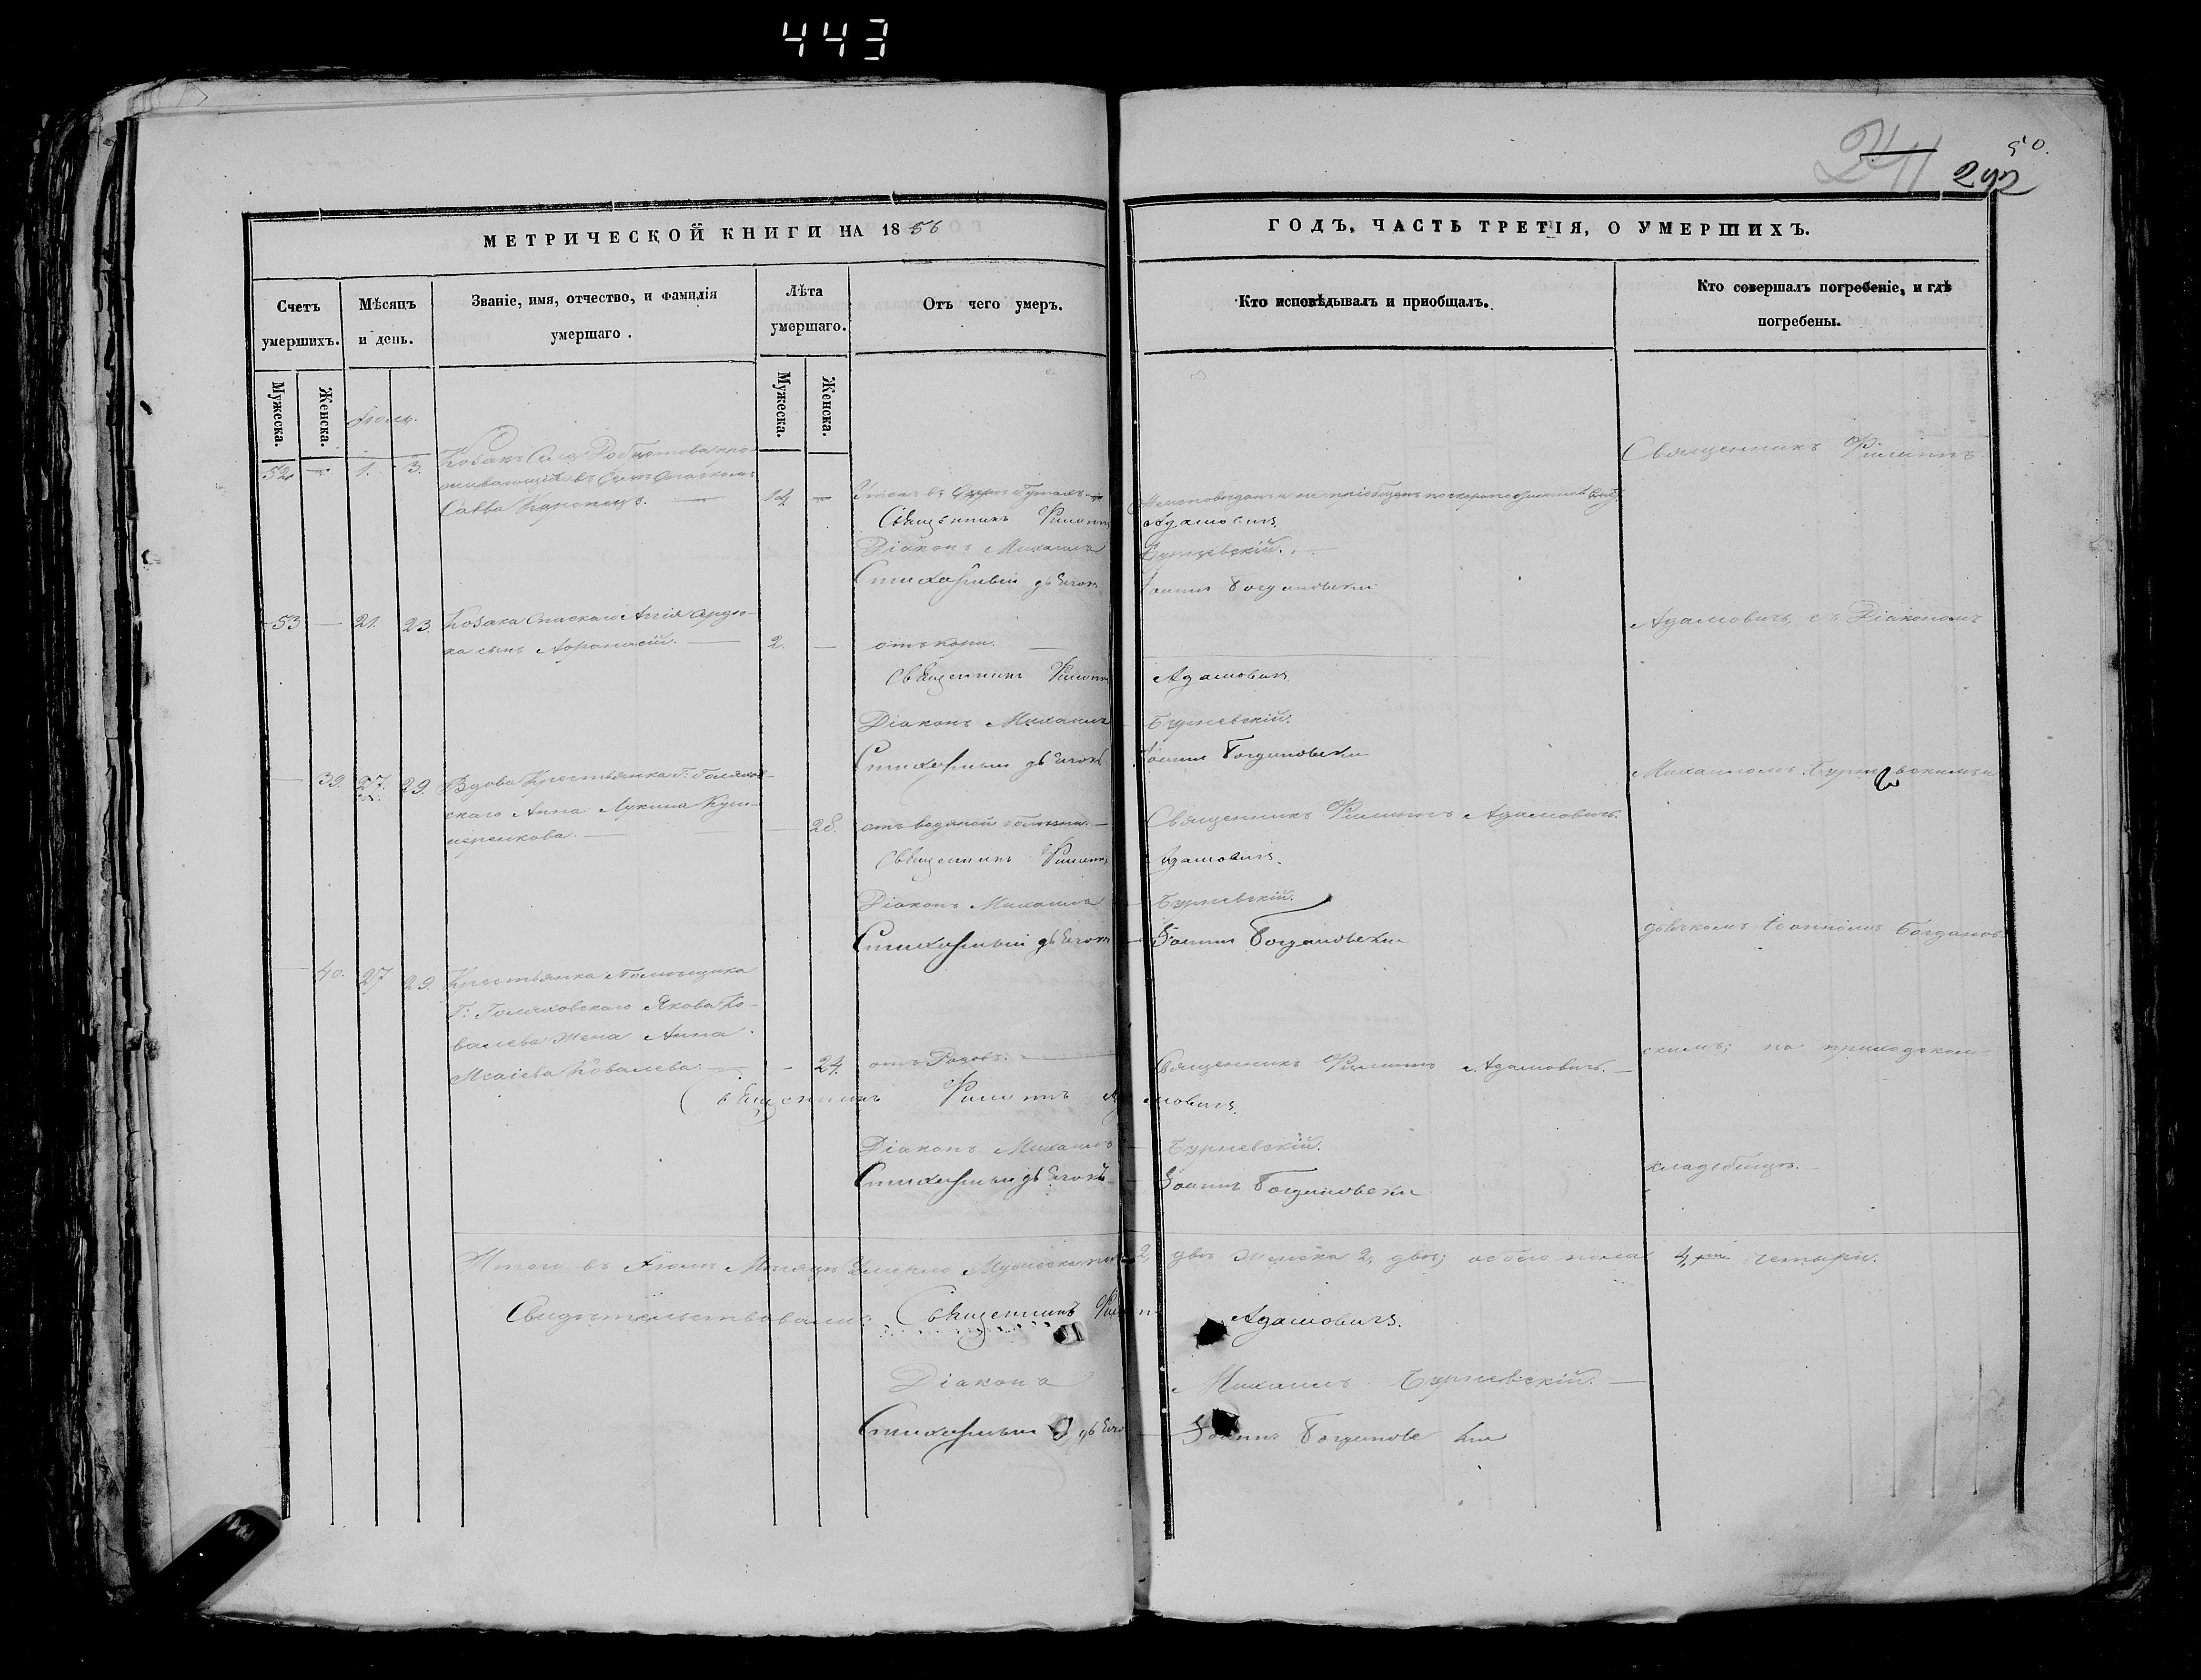 443
241
50.
292
МЕТРИЧЕСКОЙ КНИГИ НА 1856
ГОДЪ, ЧАСТЬ ТРЕТІЯ, О УМЕРШИХЪ.
Счетъ умершихъ.
Мѣсяцъ и день.
Званіе, имя, отчество, и фамилія умершаго.
Лѣта умершаго.
Отъ чего умеръ.
Кто исповѣдывалъ и приобщалъ.
Кто совершалъ погребеніе, и гдѣ погребены.
Мужеска.
Женска.
Мужеска.
Женска.
Іюль.
52 — 1. 3. Козакъ Села
Савва — 14 —
Священникъ Филиппъ Адамовичъ
Діаконъ Михаилъ Бурчевскій.
Стихарный дьячокъ Іоаннъ Богдановскій
53 — 21. 23. Козака
сынъ Афанасій. — 2. — отъ кори. —
Священникъ Филиппъ Адамовичъ
Діаконъ Михаилъ Бурчевскій.
Стихарный дьячокъ Іоаннъ Богдановскій
— 39. 27. 29. Вдова Крестьянка Г:
скаго Анна Лукина Куш-
неренкова. — — 28. отъ водяной болѣзни. — Священникъ Филиппъ Адамовичъ.
Священникъ Филиппъ Адамовичъ.
Діаконъ Михаилъ Бурчевскій.
Стихарный дьячокъ Іоаннъ Богдановскій
— 40. 27 29. Крестьянка Помѣщика
Г: Голяховскаго Якова Ко-
валева жена Анна
Исаіева Ковалева. — — 24. отъ Родовъ. — Священникъ Филиппъ Адамовичъ. —
Священникъ Филиппъ Адамовичъ.
Діаконъ Михаилъ Бурчевскій.
Стихарный дьячокъ Іоаннъ Богдановскій
Священникъ Филиппъ
Адамовичъ, съ Діакономъ
Михаиломъ Бурчевскимъ и
дьячкомъ Іоанномъ Богданов-
скимъ; на приходскомъ
кладбищѣ. —
Итого въ Іюлѣ Мѣсяцѣ Умерло Мужеска пола 2, два Женска 2, двѣ; обоего пола 4, четыре.
Свидѣтельствовали: Священникъ Филиппъ Адамовичъ.
Діаконъ Михаилъ Бурчевскій. —
Стихарный дьячокъ Іоаннъ Богдановскій